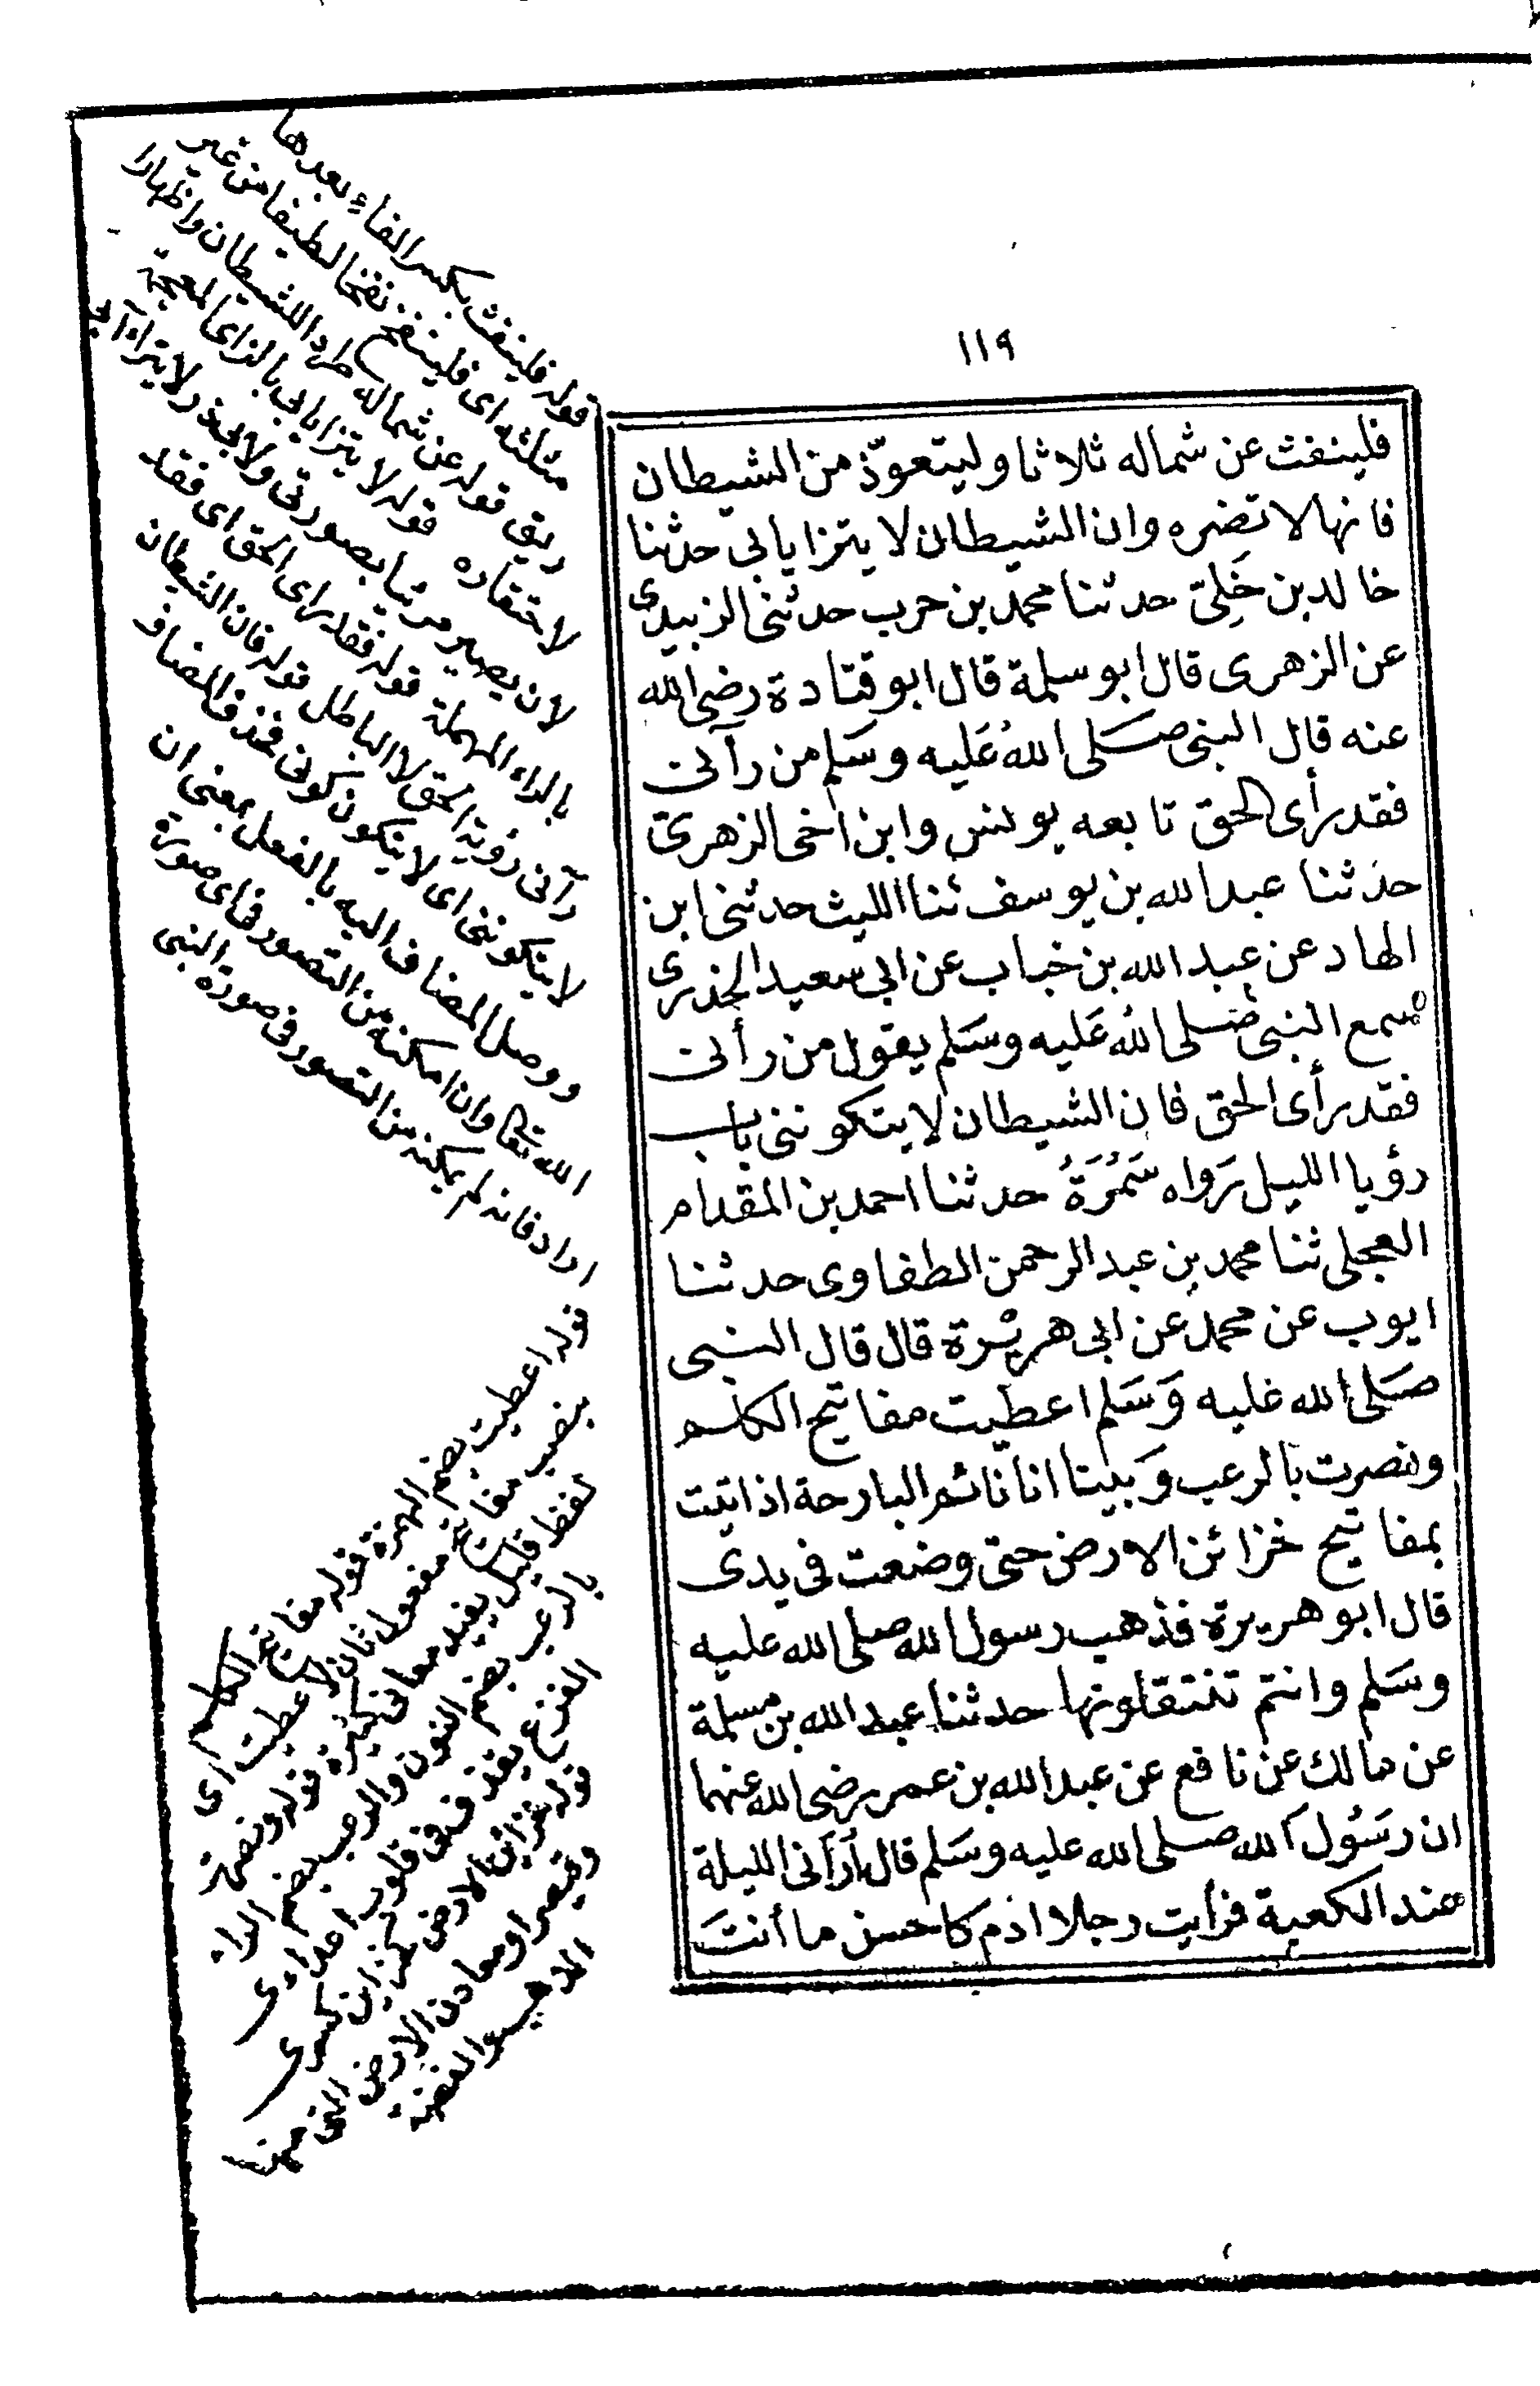 ١١٩
فلينفث عن شماله ثلاثا وليتعوّذ من الشيطان
فانها لا تضره وان الشيطان لا يتزايا بى حدثنا
خالد بن خَلِىّ حدثنا محمد بن حرب حدثنى الزبيدى
عن الزهرى قال ابو سلمة قال ابو قتادة رضى الله
عنه قال النبى صَلى اللهُ عَليه وسَلم من رآنى
فقد رأى الحق تابعه يونس وابن اخى الزهرى
حدثنا عبد الله بن يوسف ثنا الليث حدثنى ابن
الهاد عن عبد الله بن خباب عن ابى سعيد الخدرى
سمع النبى صَلى اللهُ عَليه وسَلم يقول من رأنى
فقد رأى الحق فان الشيطان لا يتكوننى باب
رؤيا الليل رَواه سَمُرَةُ حدثنا احمد بن المقدام
العجلى ثنا محمد بن عبد الرحمن الطفاوى حدثنا
ايوب عن محمد عن ابى هريْرة قال قال النبى
صَلى الله عليه وَسَلم اعطيت مفاتيح الكلم
ونصرت بالرعب وَبينا انا نائم البارحة اذ اتيت
بمفاتيح خزائن الارض حتى وضعت فى يدى
قال ابو هريرة فذهب رسول الله صلى الله عليه
وسَلم وانتم تنتقلونها حدثنا عبد الله بن مسلمة
عن مالك عن نافع عن عبد الله بن عمر رضى الله عنهما
ان رسَُول الله صلى الله عليه وسَلم قال أرَانى الليلة
عند الكعبة فرأيت رجلا ادم كاحسن ما أنتَ
قوله فلينفث بكسر الفاء بعدها
مثلثه اى فلينفخ نفخا لطيفا من غير
ريق قوله عن شماله طردا للشيطان واظهارا
لاحتقاره قوله لا يتزايا بى بالزاى المعجمة
لان يصير مرئيا بصورتى ولابى ذر لا يتراءآ بى
بالراء المهملة قوله فقد راى الحق اى فقد
رآنى رؤية الحق لا الباطل قوله فان الشيطان
لا يتكوننى اى لا يتكون كونى فحذف المضاف
ووصل المضاف اليه بالفعل بمعنى ان
الله تعالى وان امكنه من التصور فى اى صورة
اراد فانه لم يمكنه من التصور فى صورة النبى
قوله اعطيت بضم الهمزة قوله مفاتيح الكلم
بنصب مفاتيح مفعول ثان لاعطيت اى
لفظ قليل يفيد معانى كثيرة قوله ونصرت
بالرعب بضم النون والرعب بضم الراء
الفزع يقذف فى قلوب اعداءى
قوله خزائن الارض كخزائن كسرى
وقيصر او معادن الارض التى منها
الذهب والفضة